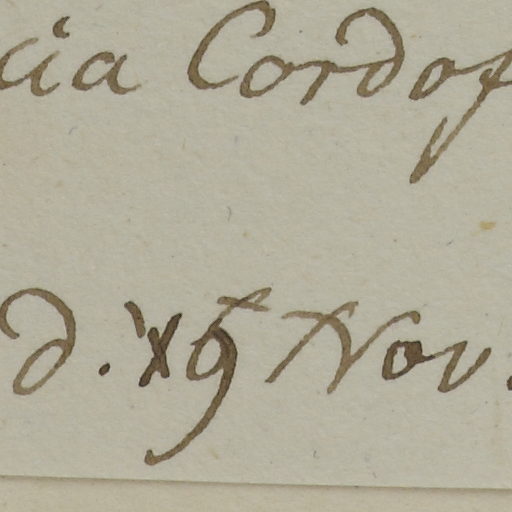 cia Cordof
d. Nov.